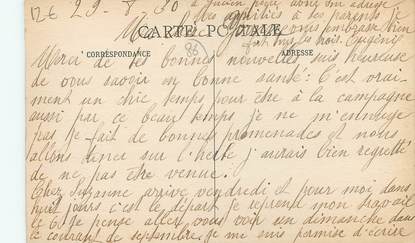 126 29-8-30
CARTE POSTALE
CORRESPONDANCE
ADRESSE
à ses parents
vous embrasse bien
fort tous les trois. Eugénie
Merci de tes bonnes nouvelles suis heureuse
de vous savoir en bonne santé: C'est vrai-
ment un chic temps pour être à la campagne
aussi par ce beau temps je ne m'ennuye
pas je fait de bonnes promenades et nous
allons danser sur l'herbe j'aurais bien regretté
de ne pas être venue.
Chez Suzanne arrive vendredi et pour moi dans
huit jours c'est le départ je reprend mon travail
le 8 je pense aller vous voir un dimanche dans
le courant de septembre, je me suis permise d'écrire